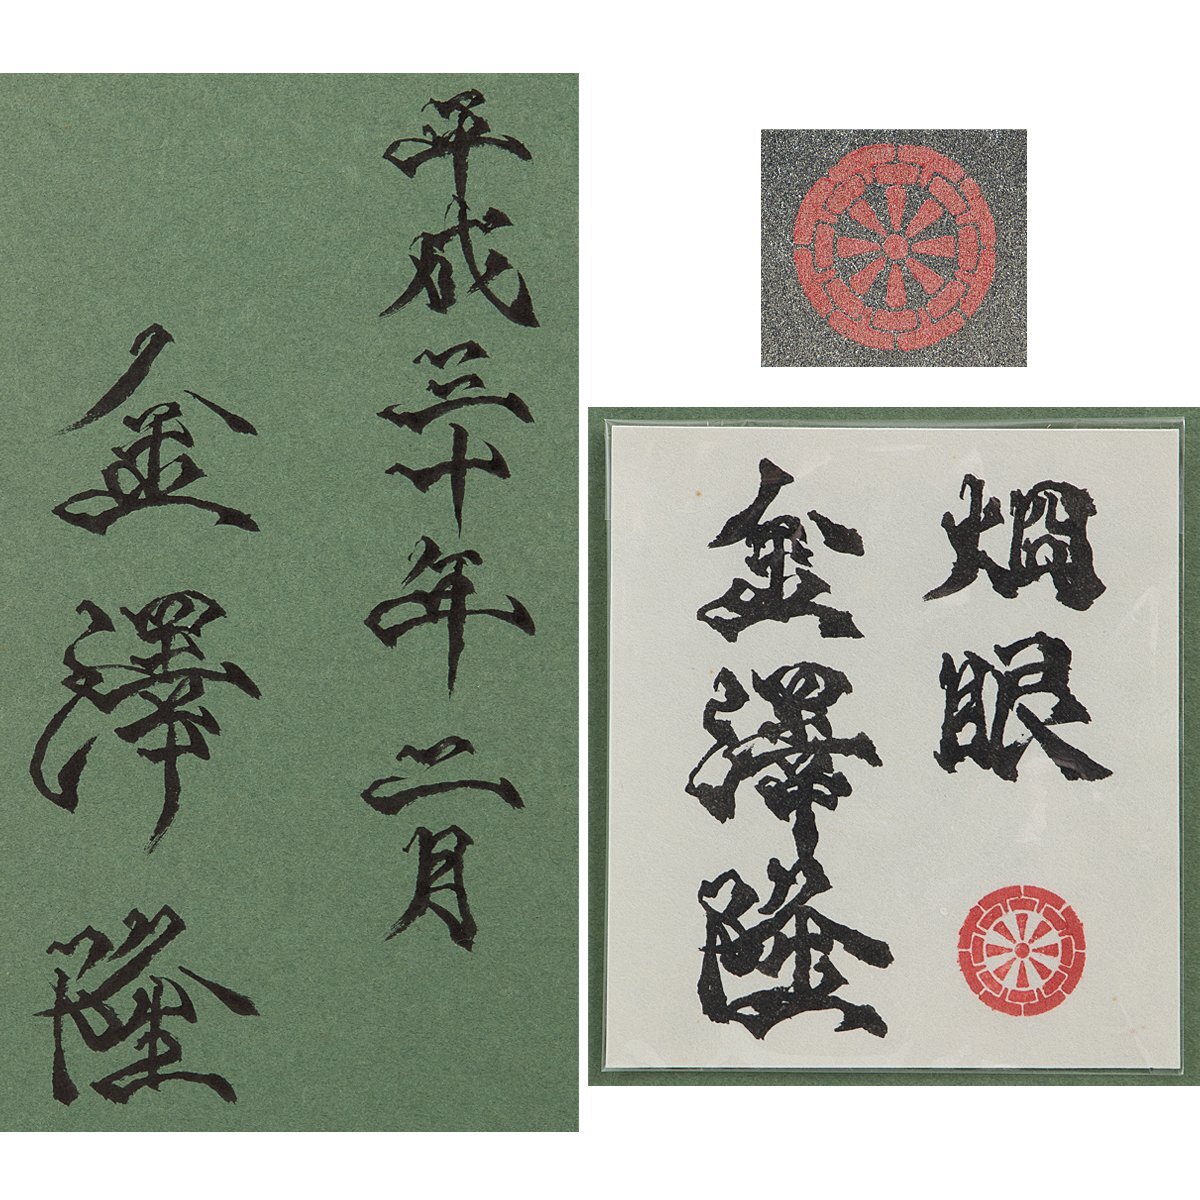 平成三十年二月
金澤隆
烱眼
金澤隆